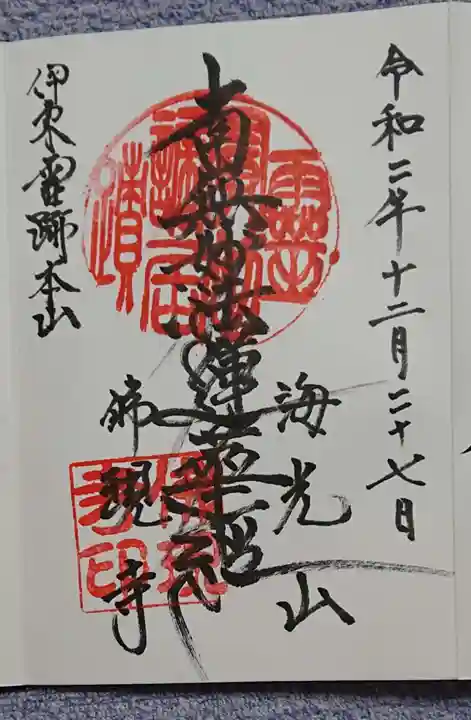 令和二年十二月二十七日
海光山
南無妙法蓮華経
佛現寺
伊東霊跡本山